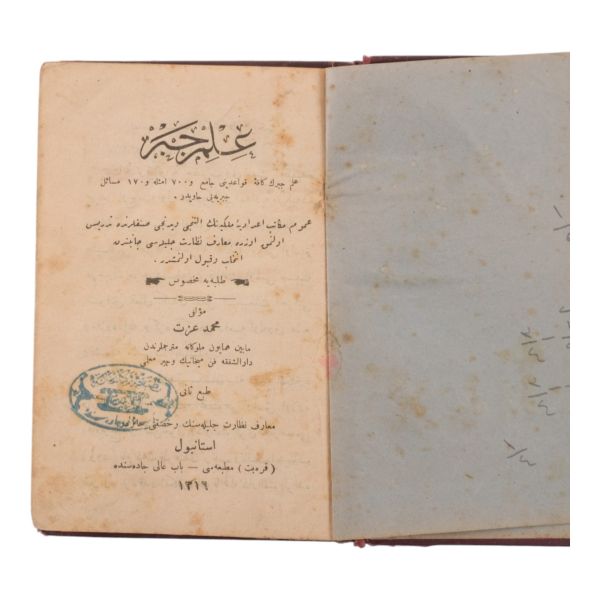 علم جبر
علم جبرك كافۀ قواعدینی جامع و ٧٠٠ امثله و ١٧٠ مسائل
جبریه‌یی حاویدر .
عموم مكاتب اعدادیۀ ملكیه‌نك التنجی و یدنجی صنفلرنده تدریس
اولنمق اوزره معارف نظارت جلیله‌سی جانبندن
انتخاب و قبول اولنمشدر .
طلبه‌یه مخصوص
مؤلفی
محمد عزت
مابین همایون ملوكانه مترجملرندن
دارالشفقه فن میخانیك و جبر معلمی
طبع ثانی
معارف نظارت جلیله‌سنك رخصتیله
استانبول
( قره‌بت ) مطبعه‌سی — باب عالی جاده‌سنده
١٣١٦